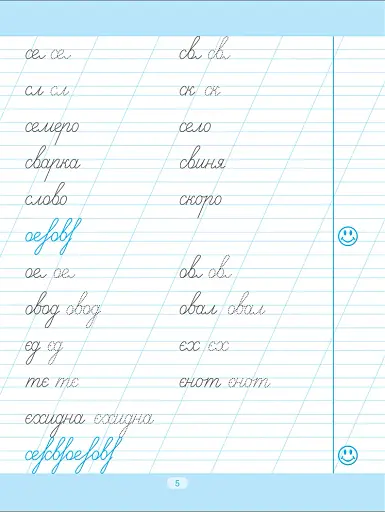 се се св св
сл сл ск ск
семеро село
сварка свиня
слово скоро
ое ое ов ов
овод овод овал овал
єд єд єх єх
тє тє єнот єнот
єхидна єхидна
5